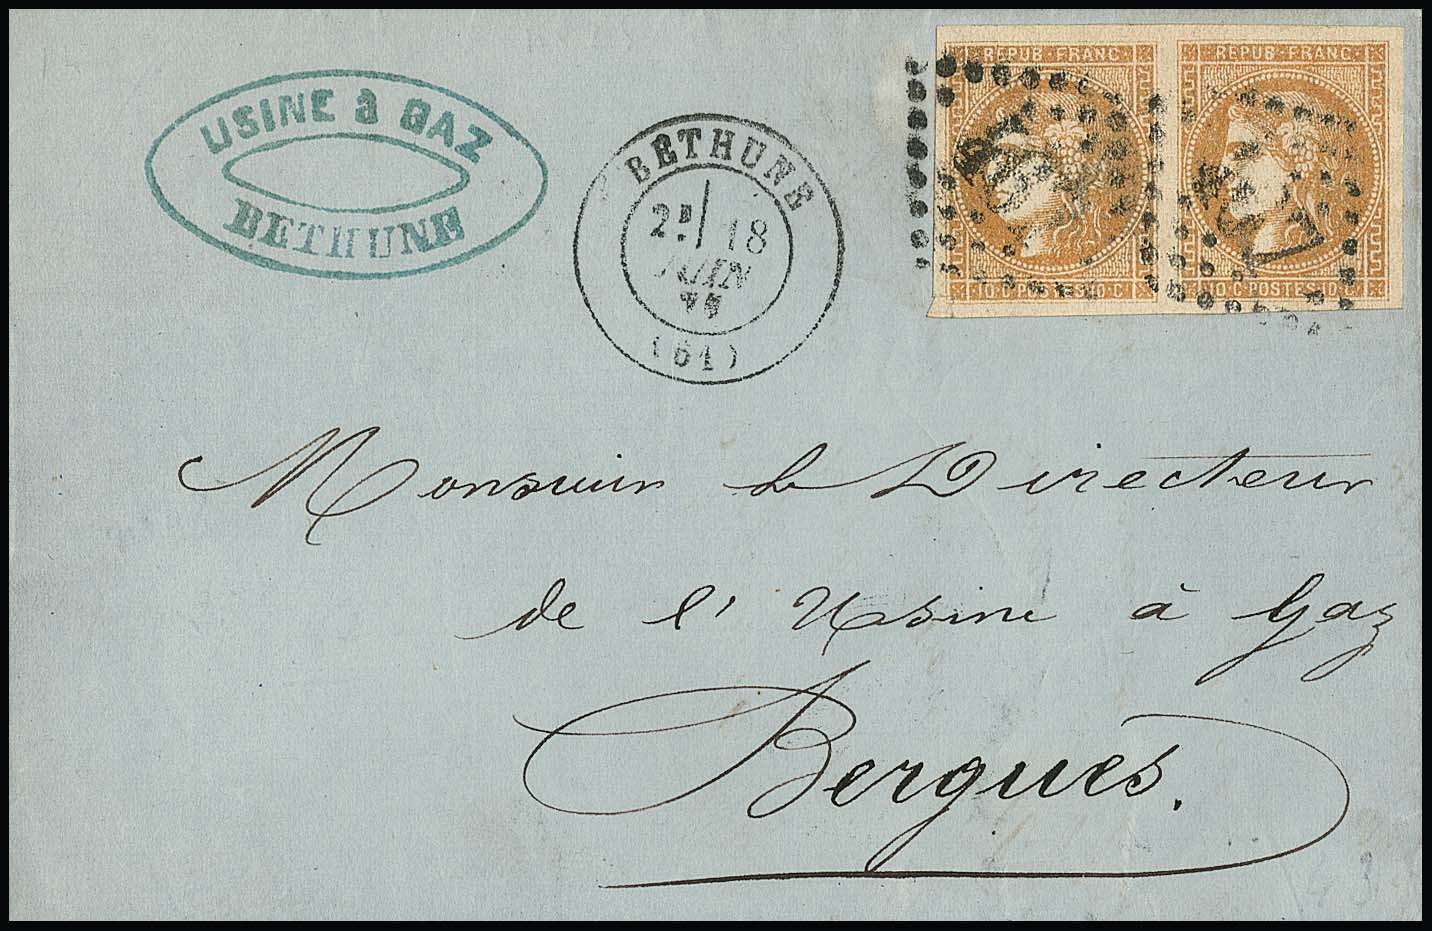 USINE à GAZ
BETHUNE
BETHUNE
2E/ 18
JUIN
(61)
REPUB·FRANC
10·C·POSTES·10·C
REPUB·FRANC
10·C·POSTES·10
Monsieur le Directeur
de l'Usine à Gaz
Bergues.